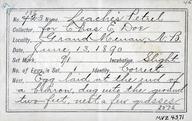 No. 463 Name Leache's Petrel
Collector for Chas E Doe
Locality Grand Menan, N.B.
Date June 13, 1890
Set Mark 91 Incubation Slight
No. Eggs in Set 1 Identity Correct
Egg laid at the end of
a burrow, dug into the ground
two feet, nest a few grasses
MVZ 4371